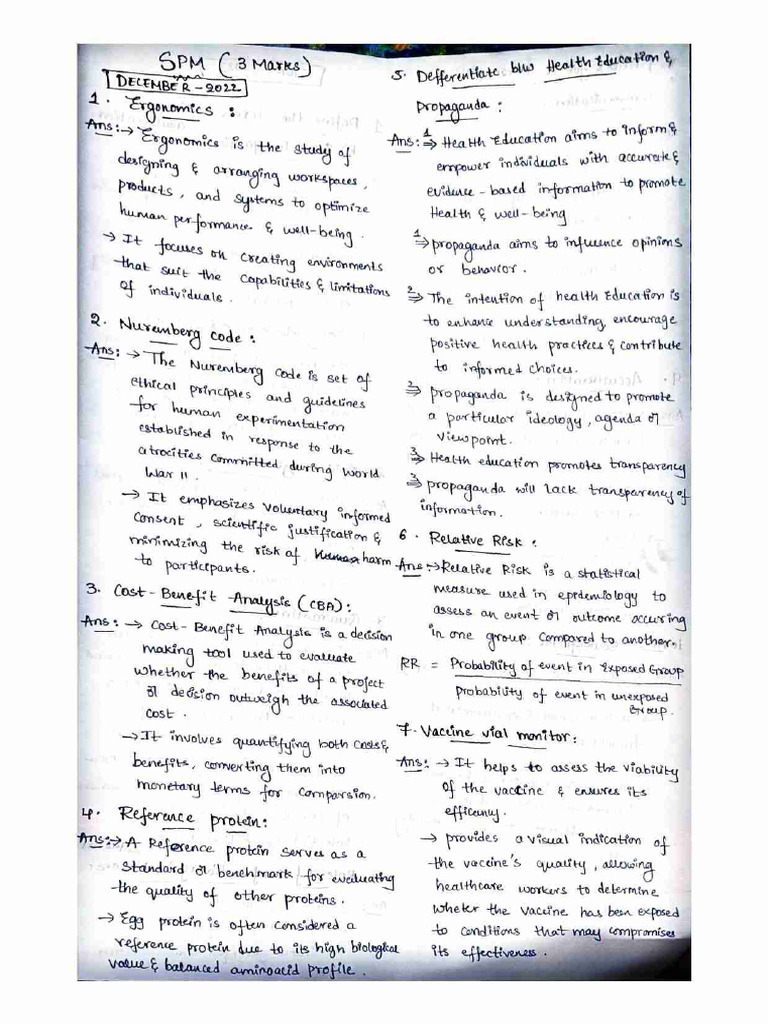 SPM ( 3 Marks)
DECEMBER - 2022
1. Ergonomics :
Ans:→ Ergonomics is the study of
designing & arranging workspaces,
products, and systems to optimize
human performance & well-being.
→ It focuses on creating environments
that suit the capabilities & limitations
of individuals.
2. Nuremberg code :
Ans: → The Nuremberg code is set of
ethical principles and guidelines
for human experimentation
established in response to the
atrocities committed during world
War II.
→ It emphasizes voluntary informed
consent, scientific justification &
minimizing the risk of harm
to participants.
3. Cost - Benefit - Analysis (CBA) :
Ans: → Cost- Benefit Analysis is a decision
making tool used to evaluate
whether the benefits of a project
or decision outweigh the associated
cost.
→ It involves quantifying both costs &
benefits, converting them into
monetary terms for comparsion.
4. Reference protein:
Ans:→ A Reference protein serves as a
standard or benchmark for evaluating
the quality of other proteins.
→ Egg protein is often considered a
reference protein due to its high biological
value & balanced aminoacid profile.
5. Defferentiate b/w Health Education &
Propaganda :
Ans: 1⇒ Health Education aims to inform &
empower individuals with accurate &
evidence - based information to promote
Health & well-being
1⇒ propaganda aims to influence opinions
or behavior.
2⇒ The intention of health Education is
to enhance understanding, encourage
positive health practices & contribute
to informed choices.
2⇒ propaganda is designed to promote
a particular ideology, agenda or
viewpoint.
3⇒ Health education promotes transparency
3⇒ propaganda will lack transparency of
information.
6. Relative Risk :
Ans:→ Relative Risk is a statistical
measure used in epidmiology to
assess an event or outcome occuring
in one group compared to another.
RR = Probability of event in Exposed Group
probability of event in unexposed
Group.
7. Vaccine vial monitor:
Ans: → It helps to assess the viability
of the vaccine & ensures its
efficency.
→ provides a visual indication of
the vaccine's quality, allowing
healthcare workers to determine
wheter the vaccine has been exposed
to conditions that may compromises
its effectiveness.